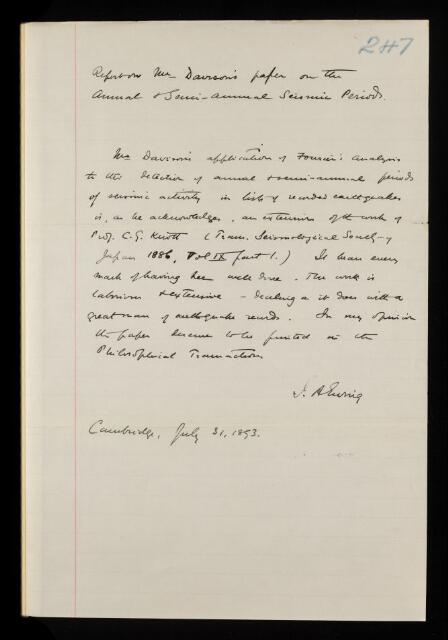 247
Report on Mr Davison's paper on the
Annual & Semi-annual Seismic Periods.
Mr Davison's application of Fourier's analysis
to the detection of annual & semi-annual periods
of seismic activity in lists of recorded earthquakes
is, as he acknowledges, an extension of the work of
Prof. C. G. Knott (Trans. Seismological Society of
Japan 1886, Vol IX part 1.) It bears every
mark of having been well done. The work is
laborious & extensive – dealing as it does with a
great mass of earthquake records. In my opinion
the paper deserves to be printed in the
Philosophical Transactions
J. A Ewing
Cambridge, July 31, 1893.